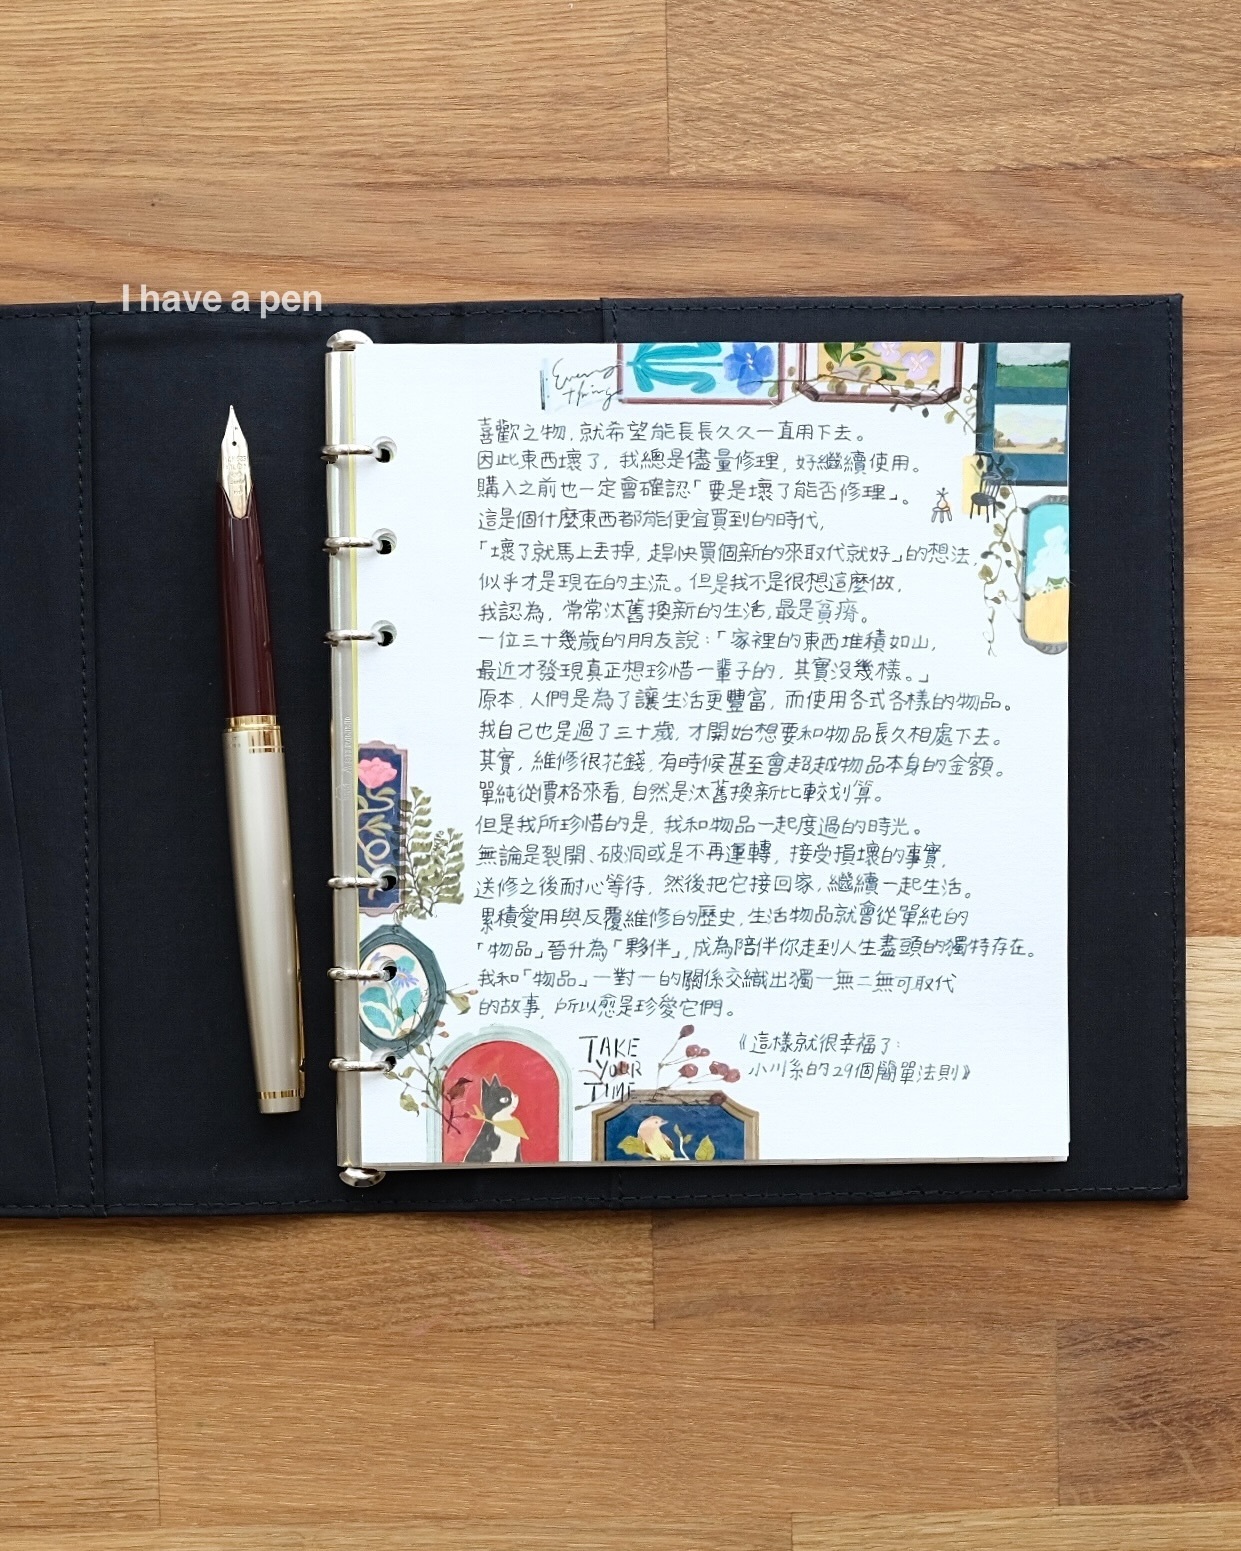 I have a pen
Every
thing
喜歡之物,就希望能長長久久一直用下去。
因此東西壞了,我總是儘量修理,好繼續使用。
購入之前也一定會確認「要是壞了能否修理」。
這是個什麼東西都能便宜買到的時代,
「壞了就馬上丟掉,趕快買個新的來取代就好」的想法,
似乎才是現在的主流。但是我不是很想這麼做,
我認為,常常汰舊換新的生活,最是貧瘠。
一位三十幾歲的朋友說:「家裡的東西堆積如山,
最近才發現真正想珍惜一輩子的,其實沒幾樣。」
原本,人們是為了讓生活更豐富,而使用各式各樣的物品。
我自己也是過了三十歲,才開始想要和物品長久相處下去。
其實,維修很花錢,有時候甚至會超越物品本身的金額。
單純從價格來看,自然是汰舊換新比較划算。
但是我所珍惜的是,我和物品一起度過的時光。
無論是裂開、破洞或是不再運轉,接受損壞的事實,
送修之後耐心等待,然後把它接回家,繼續一起生活。
累積愛用與反覆維修的歷史,生活物品就會從單純的
「物品」晉升為「夥伴」,成為陪伴你走到人生盡頭的獨特存在。
我和「物品」一對一的關係交織出獨一無二無可取代
的故事,所以愈是珍愛它們。
TAKE
YOUR
TIME
《這樣就很幸福了:
小川糸的29個簡單法則》